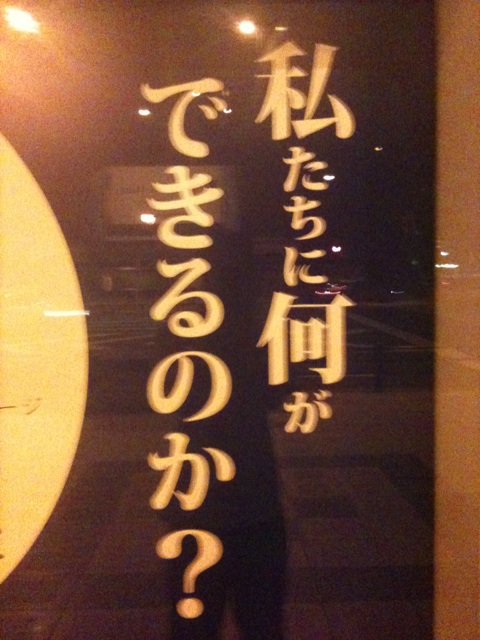 私たちに何が
できるのか?